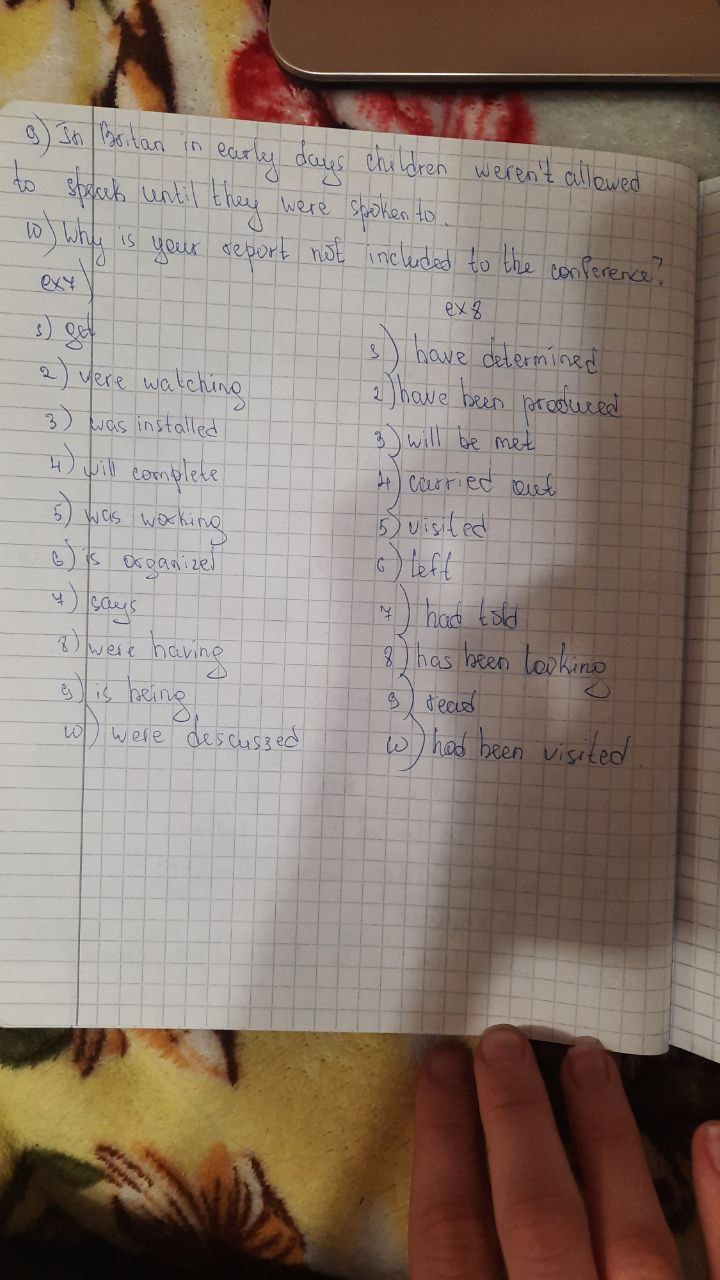 9) In Britan in early days children weren't allowed
to speak until they were spoken to.
10) Why is your report not included to the conference?
ex7)
1) get
2) were watching
3) was installed
4) will complete
5) was working
6) is organized
7) says
8) were having
9) is being
10) were descussed
ex8
1) have determined
2) have been produced
3) will be met
4) carried out
5) visited
6) left
7) had told
8) has been looking
9) read
10) had been visited.